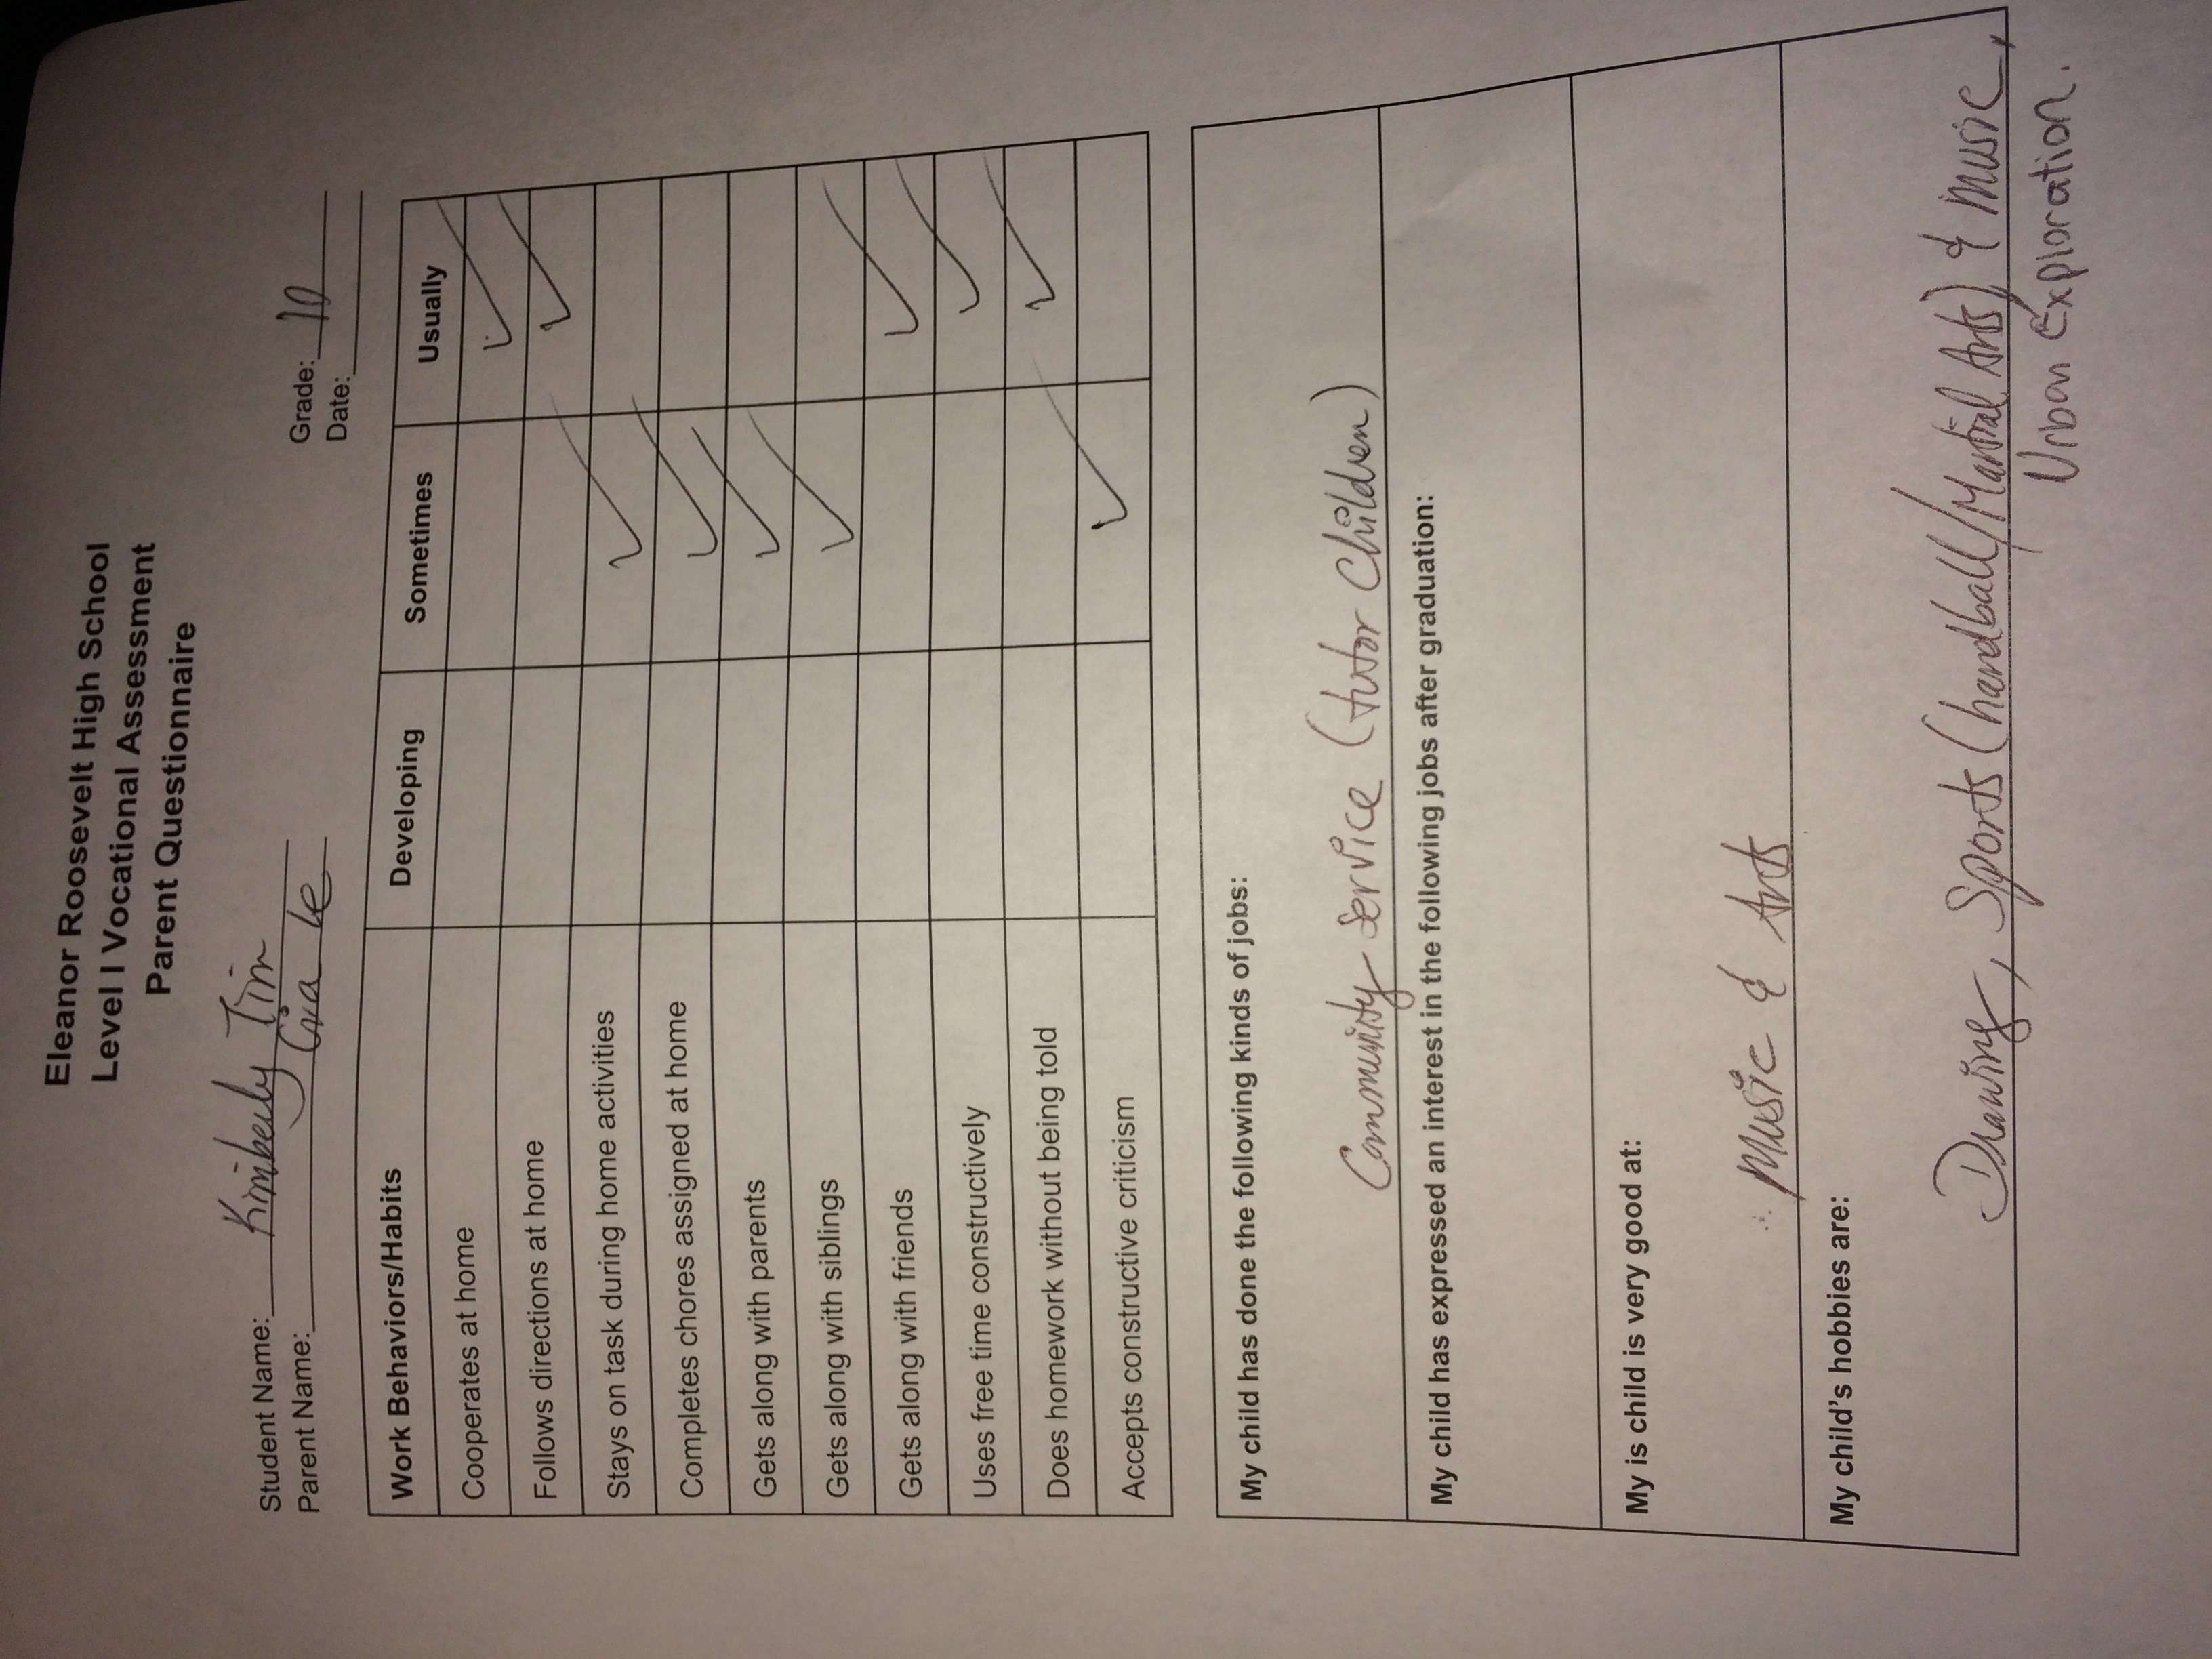 Eleanor Roosevelt High School
Level I Vocational Assessment
Parent Questionnaire
Student Name: Kimberly Tim
Parent Name: Gia Le
Grade: 10
Date:
Work Behaviors/Habits Developing Sometimes Usually
Cooperates at home ✓
Follows directions at home ✓
Stays on task during home activities ✓
Completes chores assigned at home ✓
Gets along with parents ✓
Gets along with siblings ✓
Gets along with friends ✓
Uses free time constructively ✓
Does homework without being told ✓
Accepts constructive criticism ✓
My child has done the following kinds of jobs:
Community Service (tutor Children)
My child has expressed an interest in the following jobs after graduation:
My is child is very good at:
Music & Arts
My child's hobbies are:
Drawing, Sports (handball/Martial Arts) & music,
Urban Exploration.